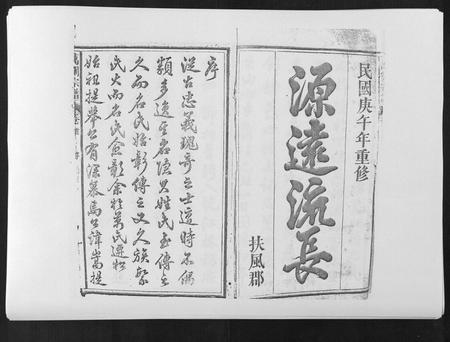 民國庚午年重修
源遠流長
扶風郡
序
從古忠義瑰奇之士遭時不偶
類多逸其名隱其姓氏至傳之
久而名氏始彰傳之又久族繁
氏大而名氏愈彰余於萬氏選
始祖提舉公有深慕焉公諱嵩提